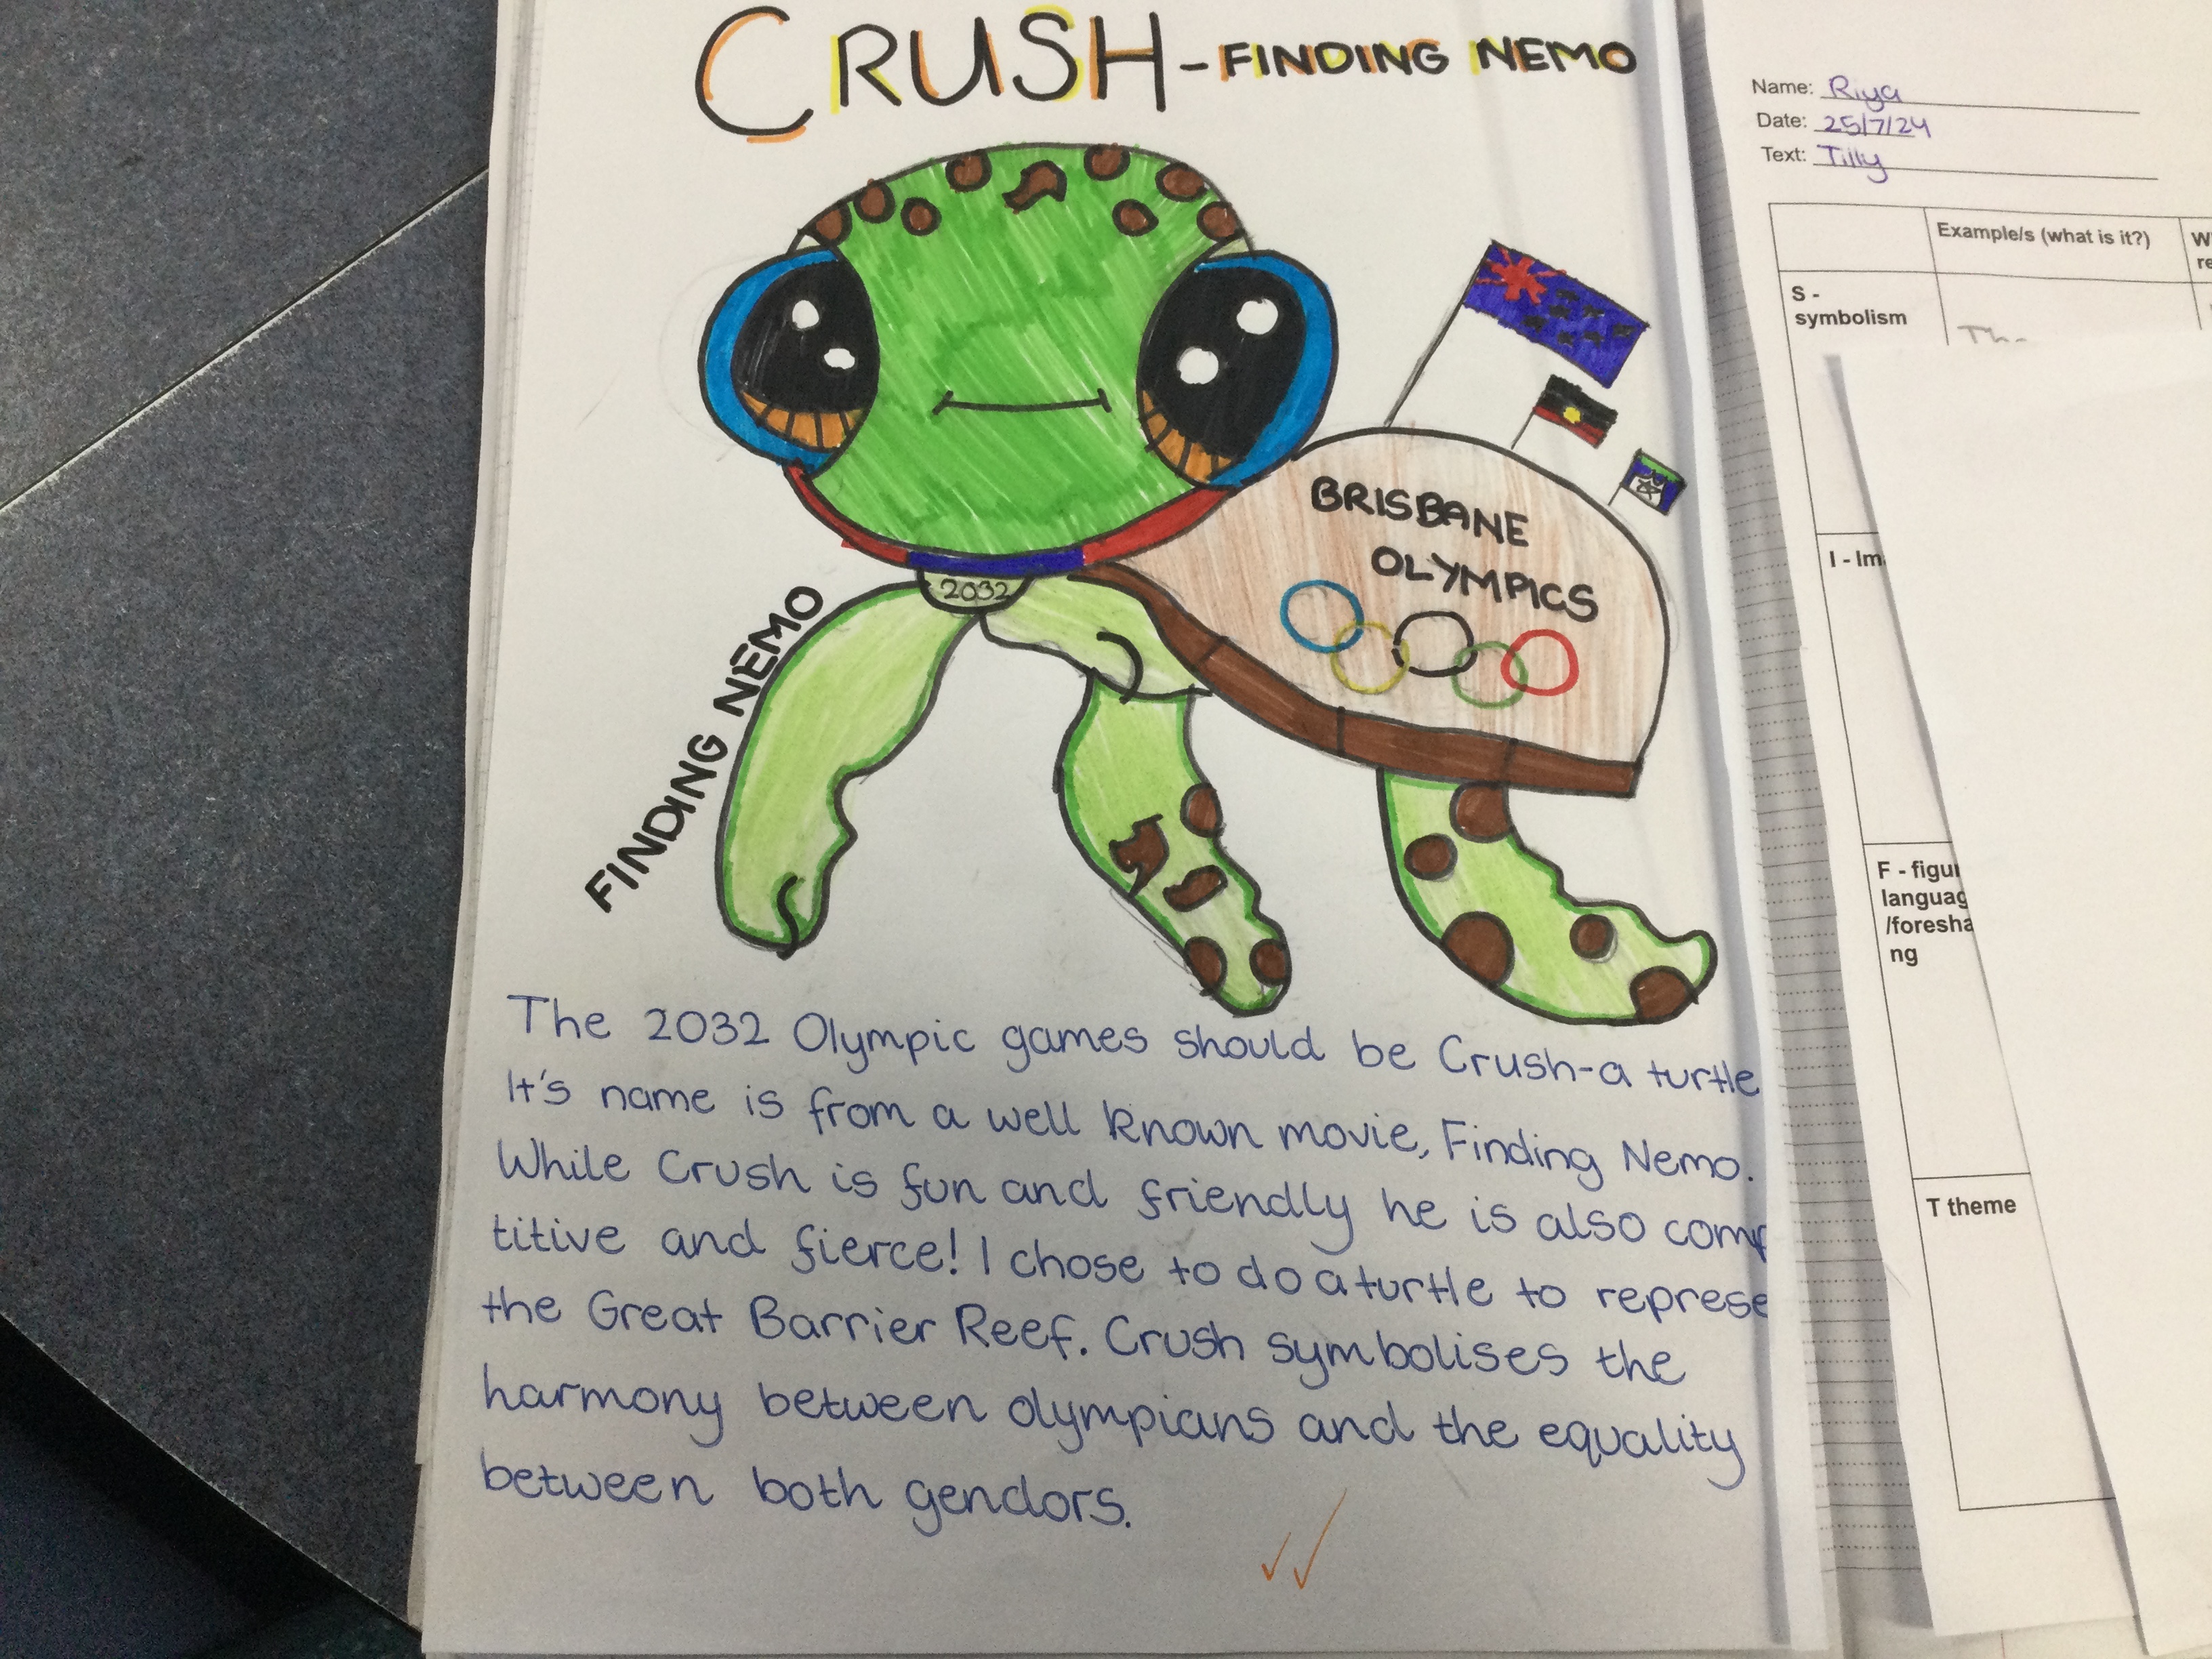 CRUSH - FINDING NEMO
BRISBANE
OLYMPICS
2032
FINDING NEMO
The 2032 Olympic games should be Crush-a turtle
It's name is from a well known movie, Finding Nemo.
While Crush is fun and friendly he is also comp
titive and fierce! I chose to do a turtle to represe
the Great Barrier Reef. Crush symbolises the
harmony between olympians and the equality
between both gendors.
Name: Riya
Date: 25/7/24
Text: Tilly
Example/s (what is it?)
W
re
S -
symbolism
Th
I - Im
F - figur
languag
/foresha
ng
T theme